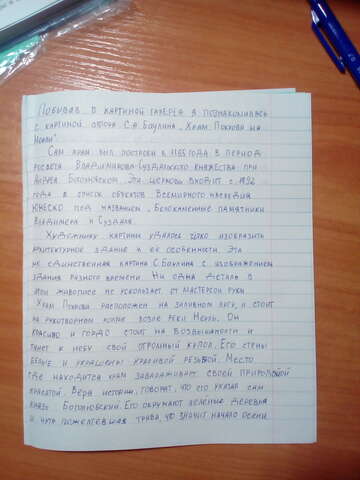 Побывав в картиной галерея я познакомилась
с картиной автора С.А Баулина „Храм Покрова на
Нерли".
Сам храм был построен в 1165 года в период
росвета Владимирова-Суздальского княжества при
Андрея Боголюбском. Эта церковь входит с 1992
года в список объектов Всемирного наследия
ЮНЕСКО под названием „Белокаменные памятники
Владимира и Суздаля.
Художнику картины удалось ярко изобразить
архитектурное здание и её особенности. Эта
не единственная картина С.Баулина с изображением
здания разного времени. Ни одна деталь в
этой живописе не ускользает от мастерсой руки
Храм Покрова расположен на заливном лугу, и стоит
на рукотворном холме возле реки Нерль. Он
красиво и гордо стоит на возвышаности и
тянет к небу свой огромный купол. Его стены
белые и украшены красивой резьбой. Место
где находится храм завараживает своей природной
красатой. Веря истории, говорят, что его указал сам
князь Боголюбовский. Его окружают зелёные деревья
и чуть пожелтевшая трава, что значит начало осени